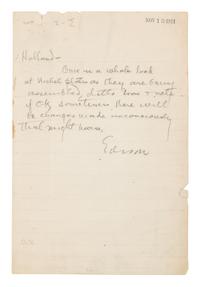 NOV 15 1911
Holland-
Once in a while look
at Nickel plates as they are being
assembled, ditto iron + note
if OK sometimes there will
be changes made unconsciously
that might harm.
Edison